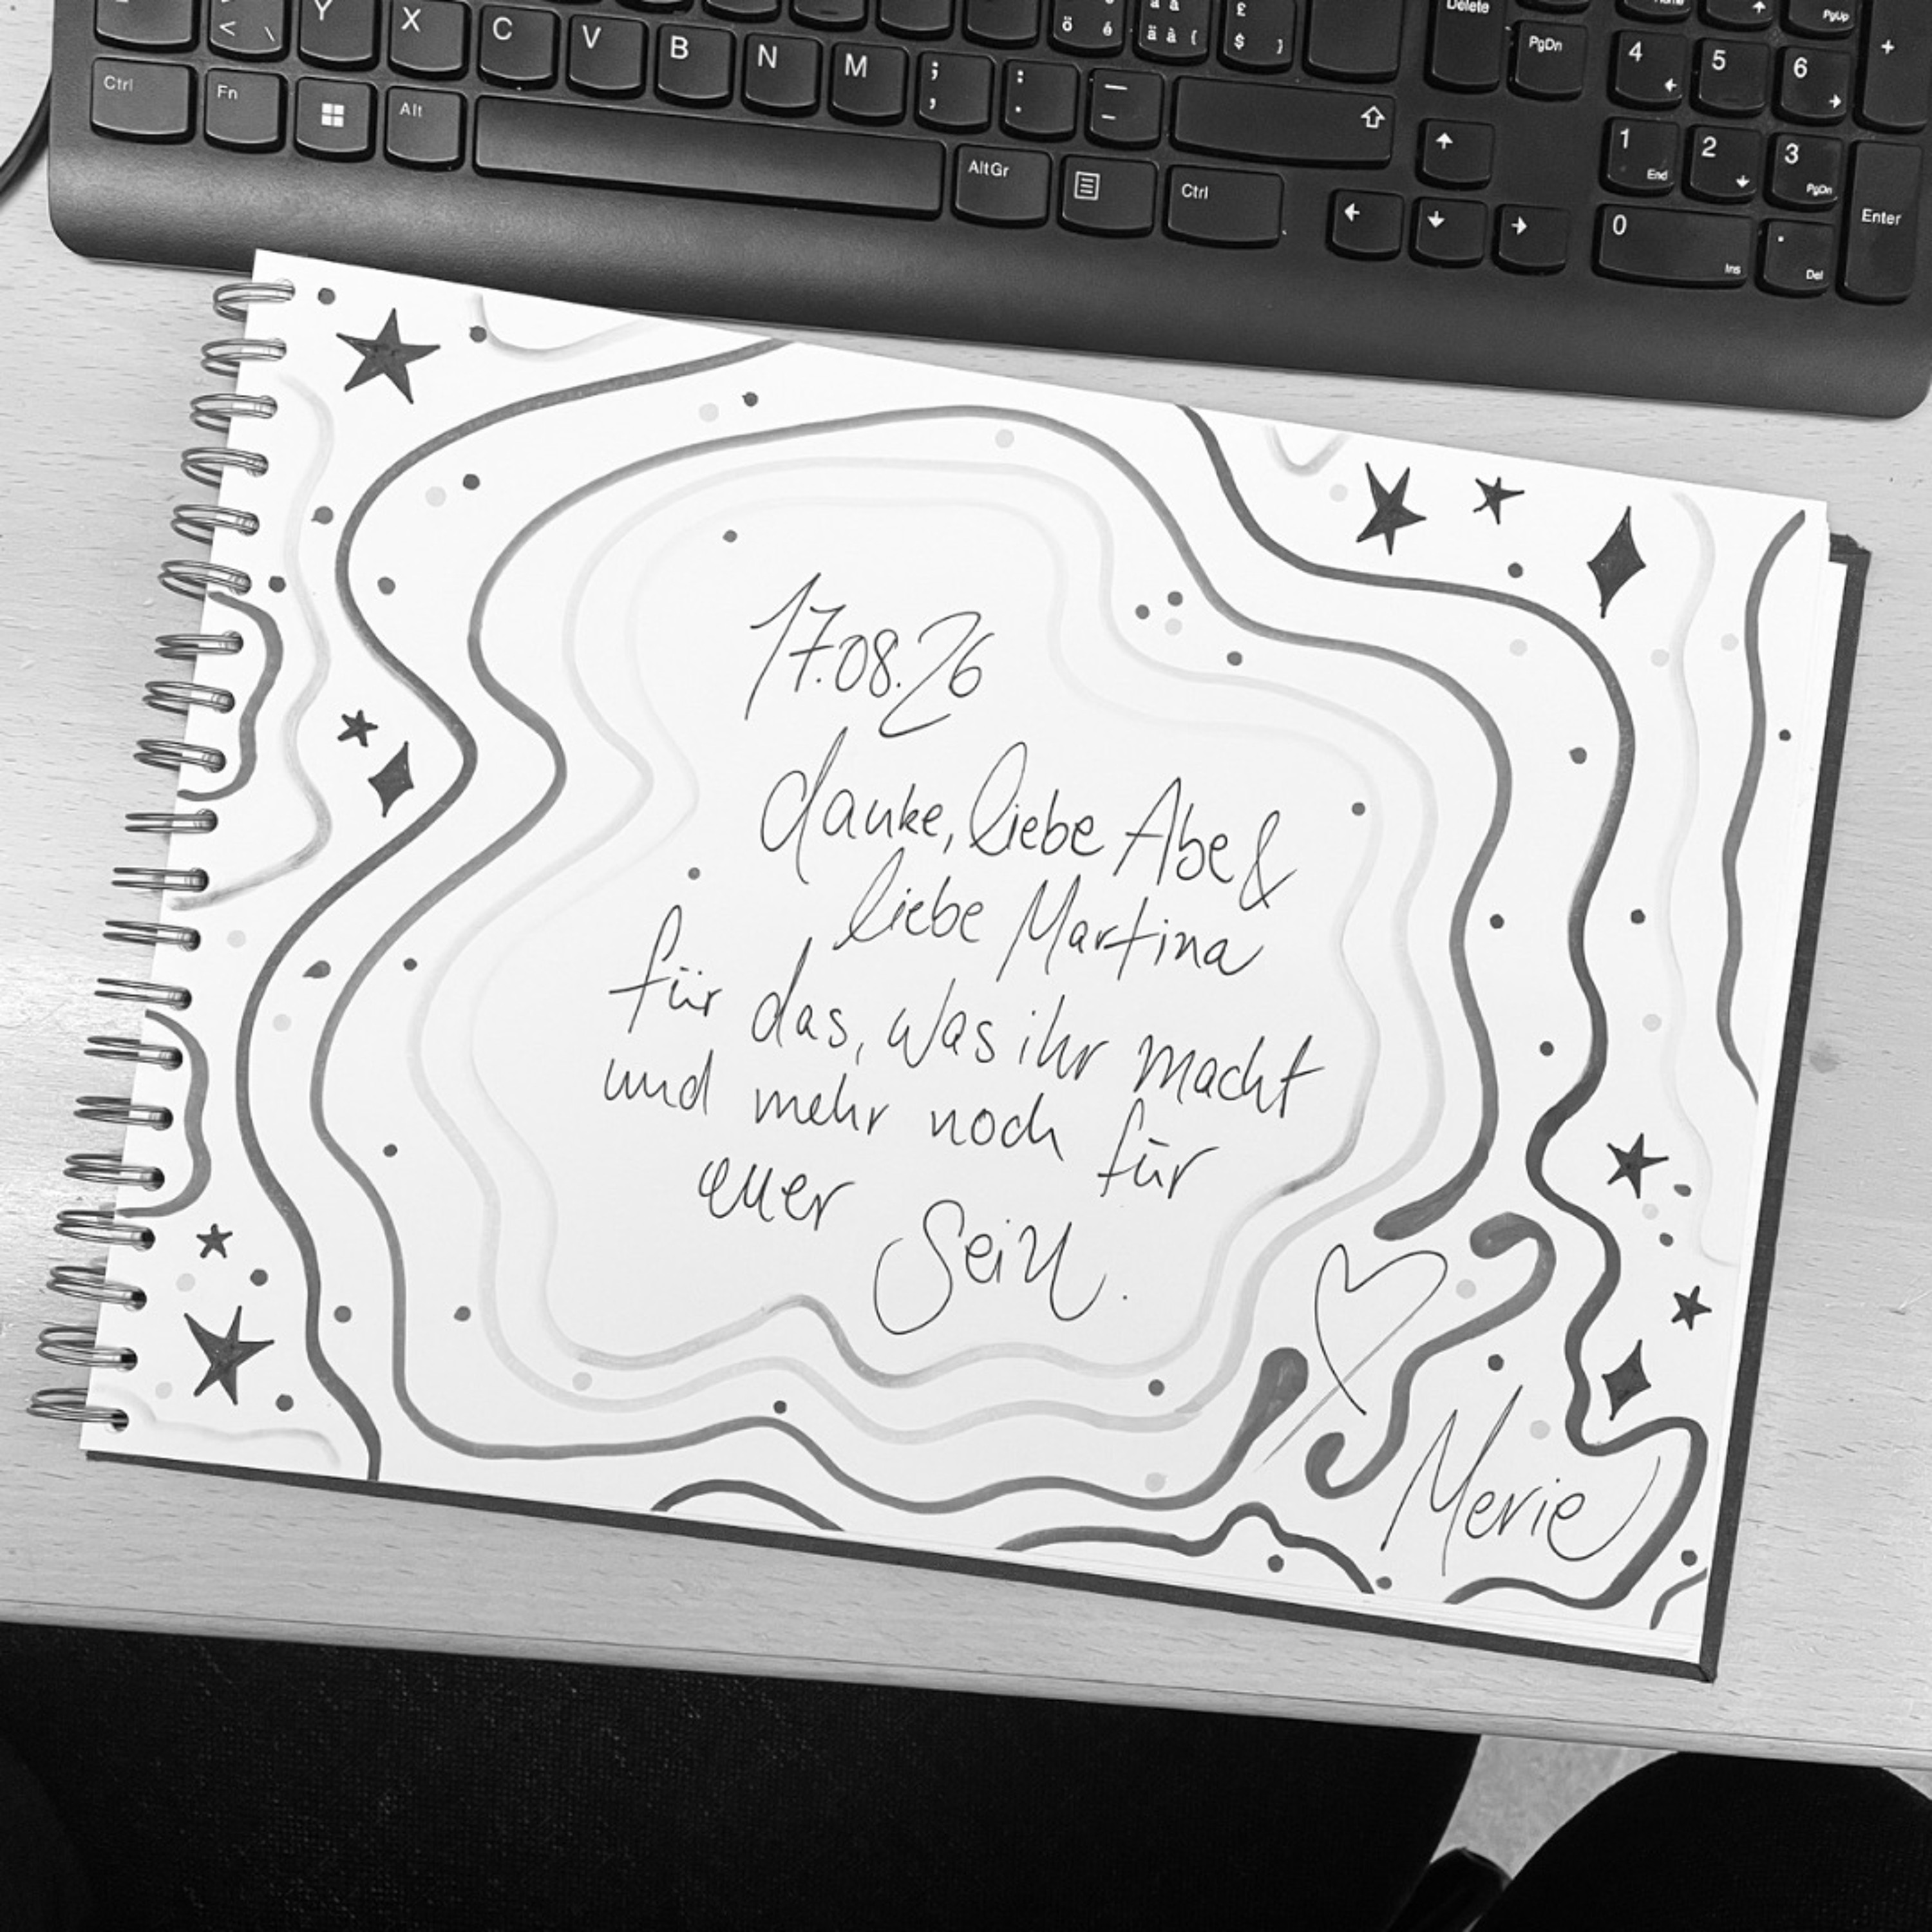 Y X C V B N M ; , : . — - ö é ä à { £ $ } Delete PgDn 4 5 6 PgUp +
Ctrl Fn Alt AltGr Ctrl 1 End 2 3 PgDn 0 Ins . Del Enter
17.08.26
danke, liebe Abe &
liebe Martina
für das, was ihr macht
und mehr noch für
euer Sein.
Merie